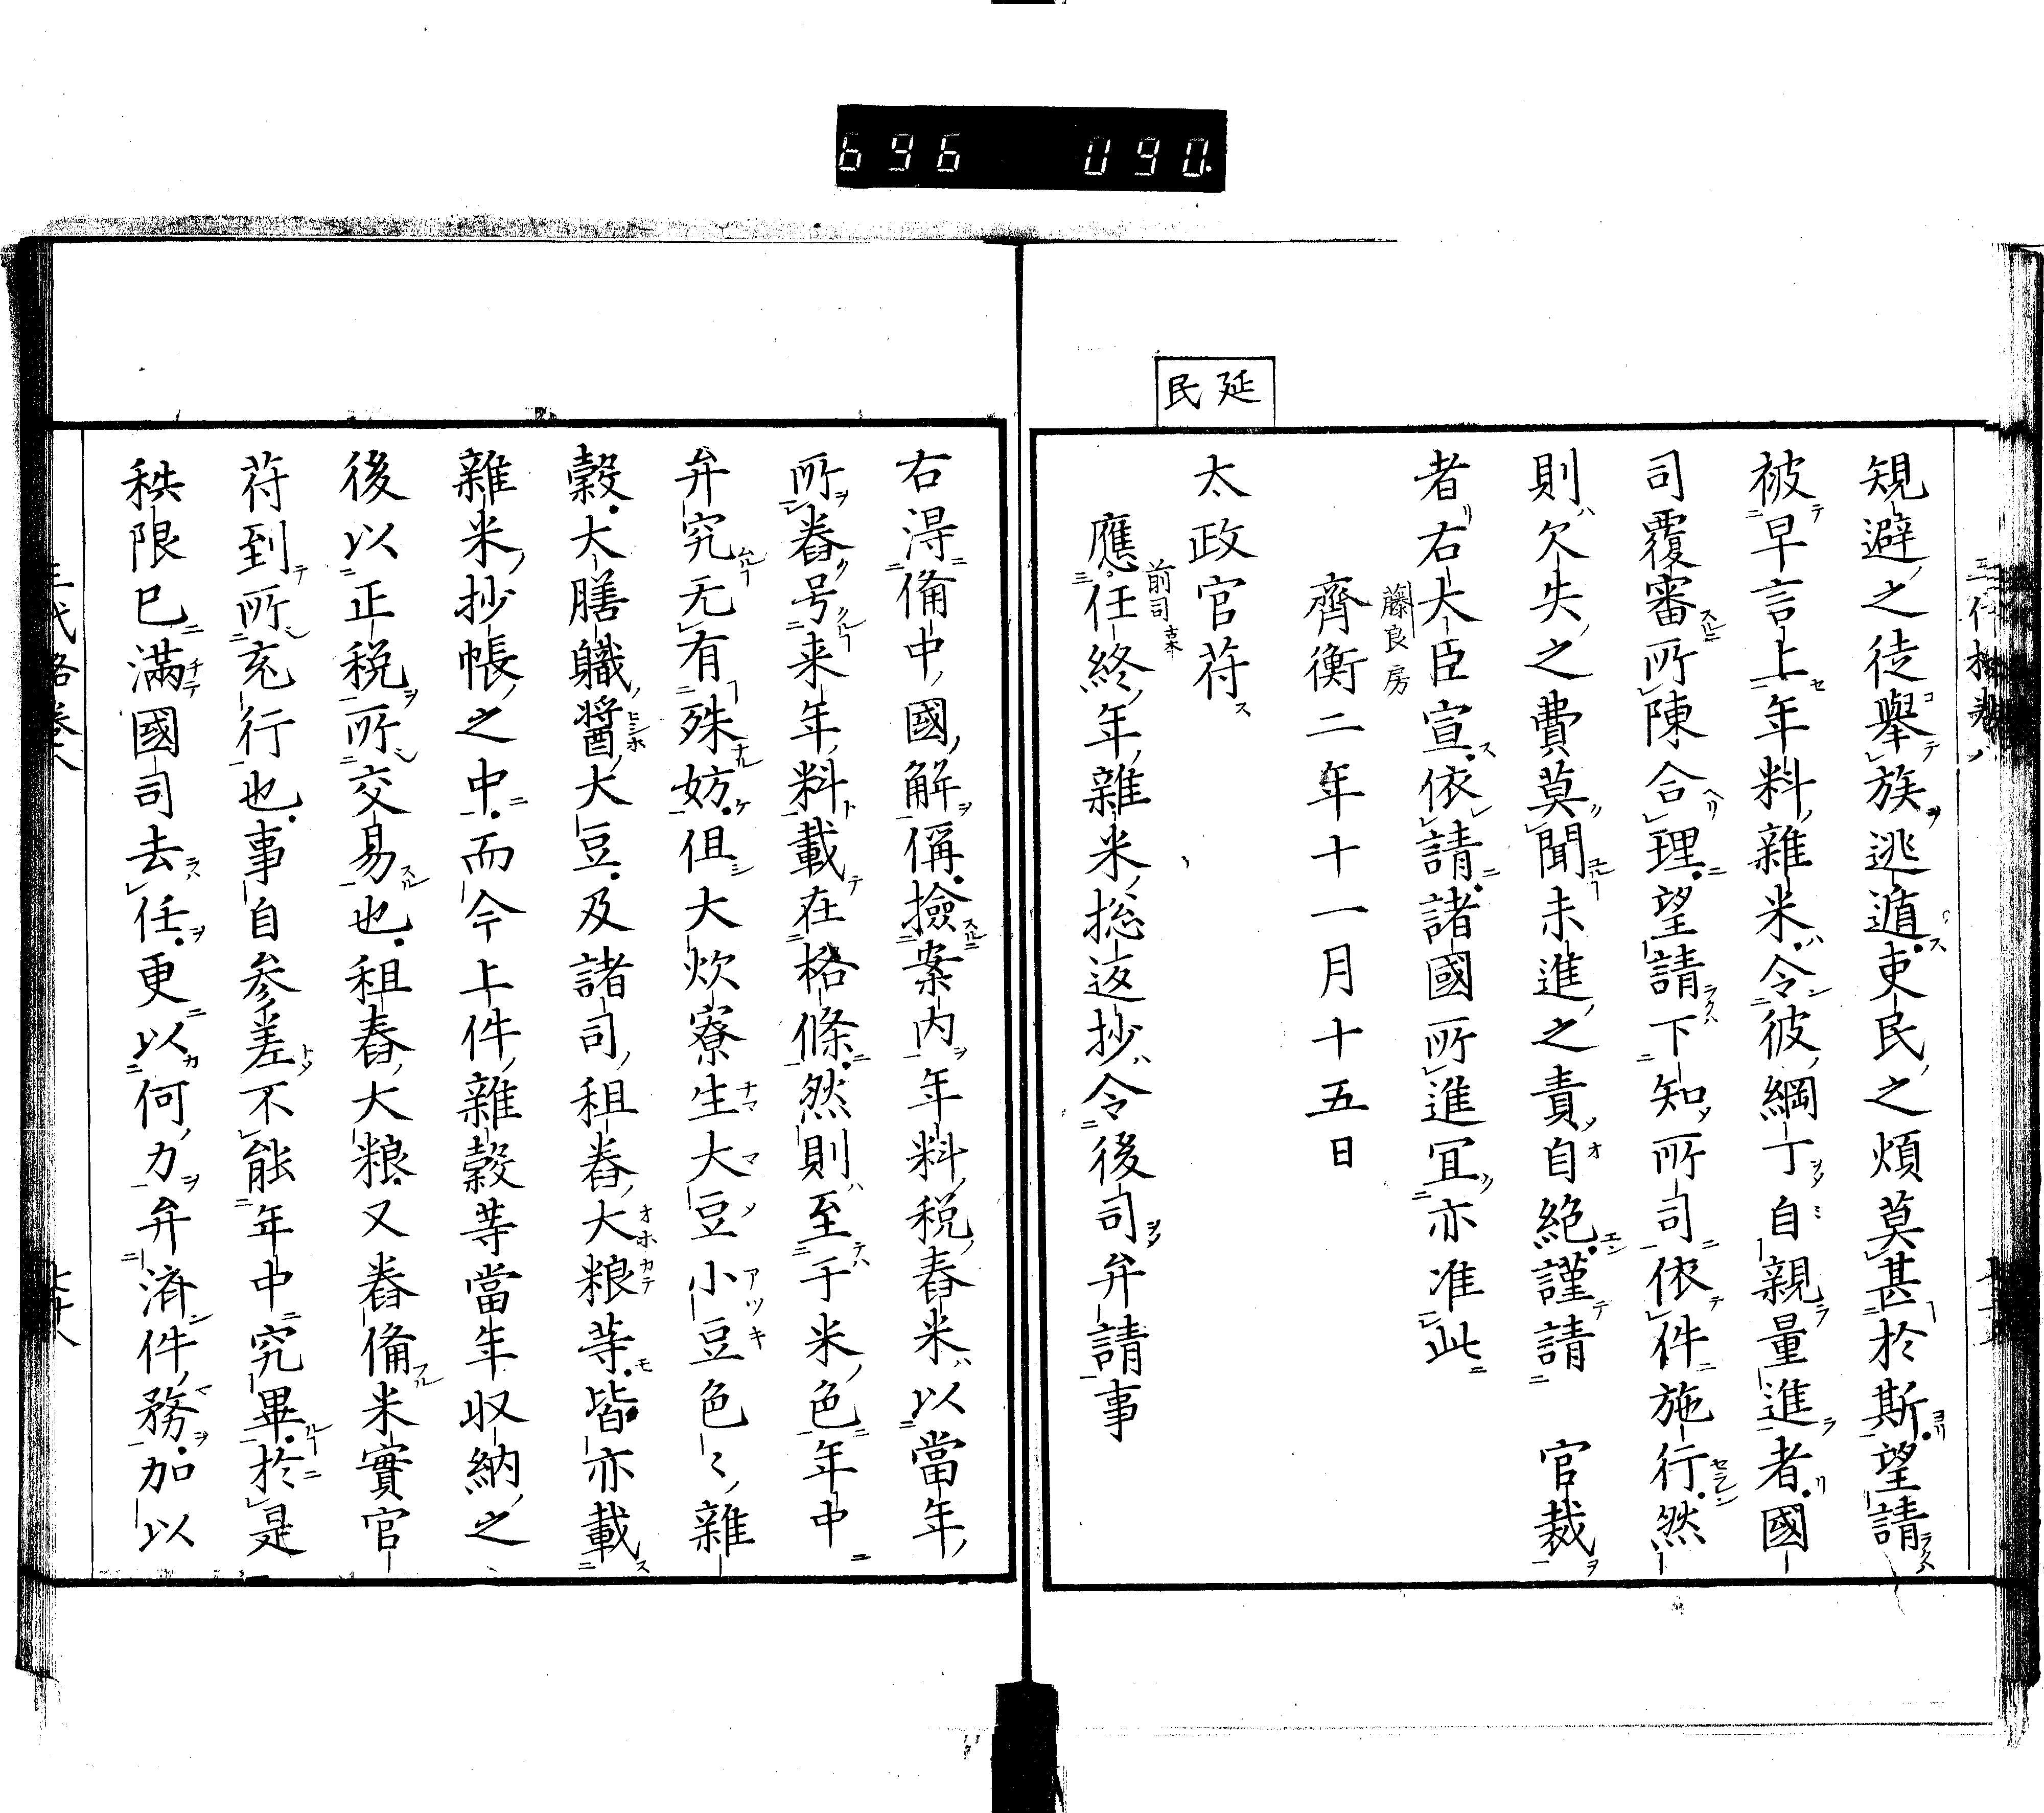 696 090.
延民
規避之徒舉族逃遁吏民之煩莫甚於斯望請
被早言上年料雜米令彼綱丁自親量進者國
司覆審所陳合理望請下知所司依件施行然
則欠失之費莫聞未進之責自絶謹請 官裁
者右大臣宣依請諸國所進冝亦准此
藤良房
齊衡二年十一月十五日
太政官苻
應任終年雜米捴返抄令後司弁請事
前司古本
右得備中國解偁撿案内年料税舂米以當年
所舂号来年料載在格條然則至于米色年中
弁究无有殊妨但大炊寮生大豆小豆色〻雜
穀大膳軄醤大豆及諸司租舂大粮等皆亦載
雜米抄帳之中而今上件雜穀等當年収納之
後以正税所交易也租舂大粮又舂備米實官
苻到所充行也事自参差不能年中究畢於是
秩限已満國司去任更以何力弁済件務加以
三代格卷八